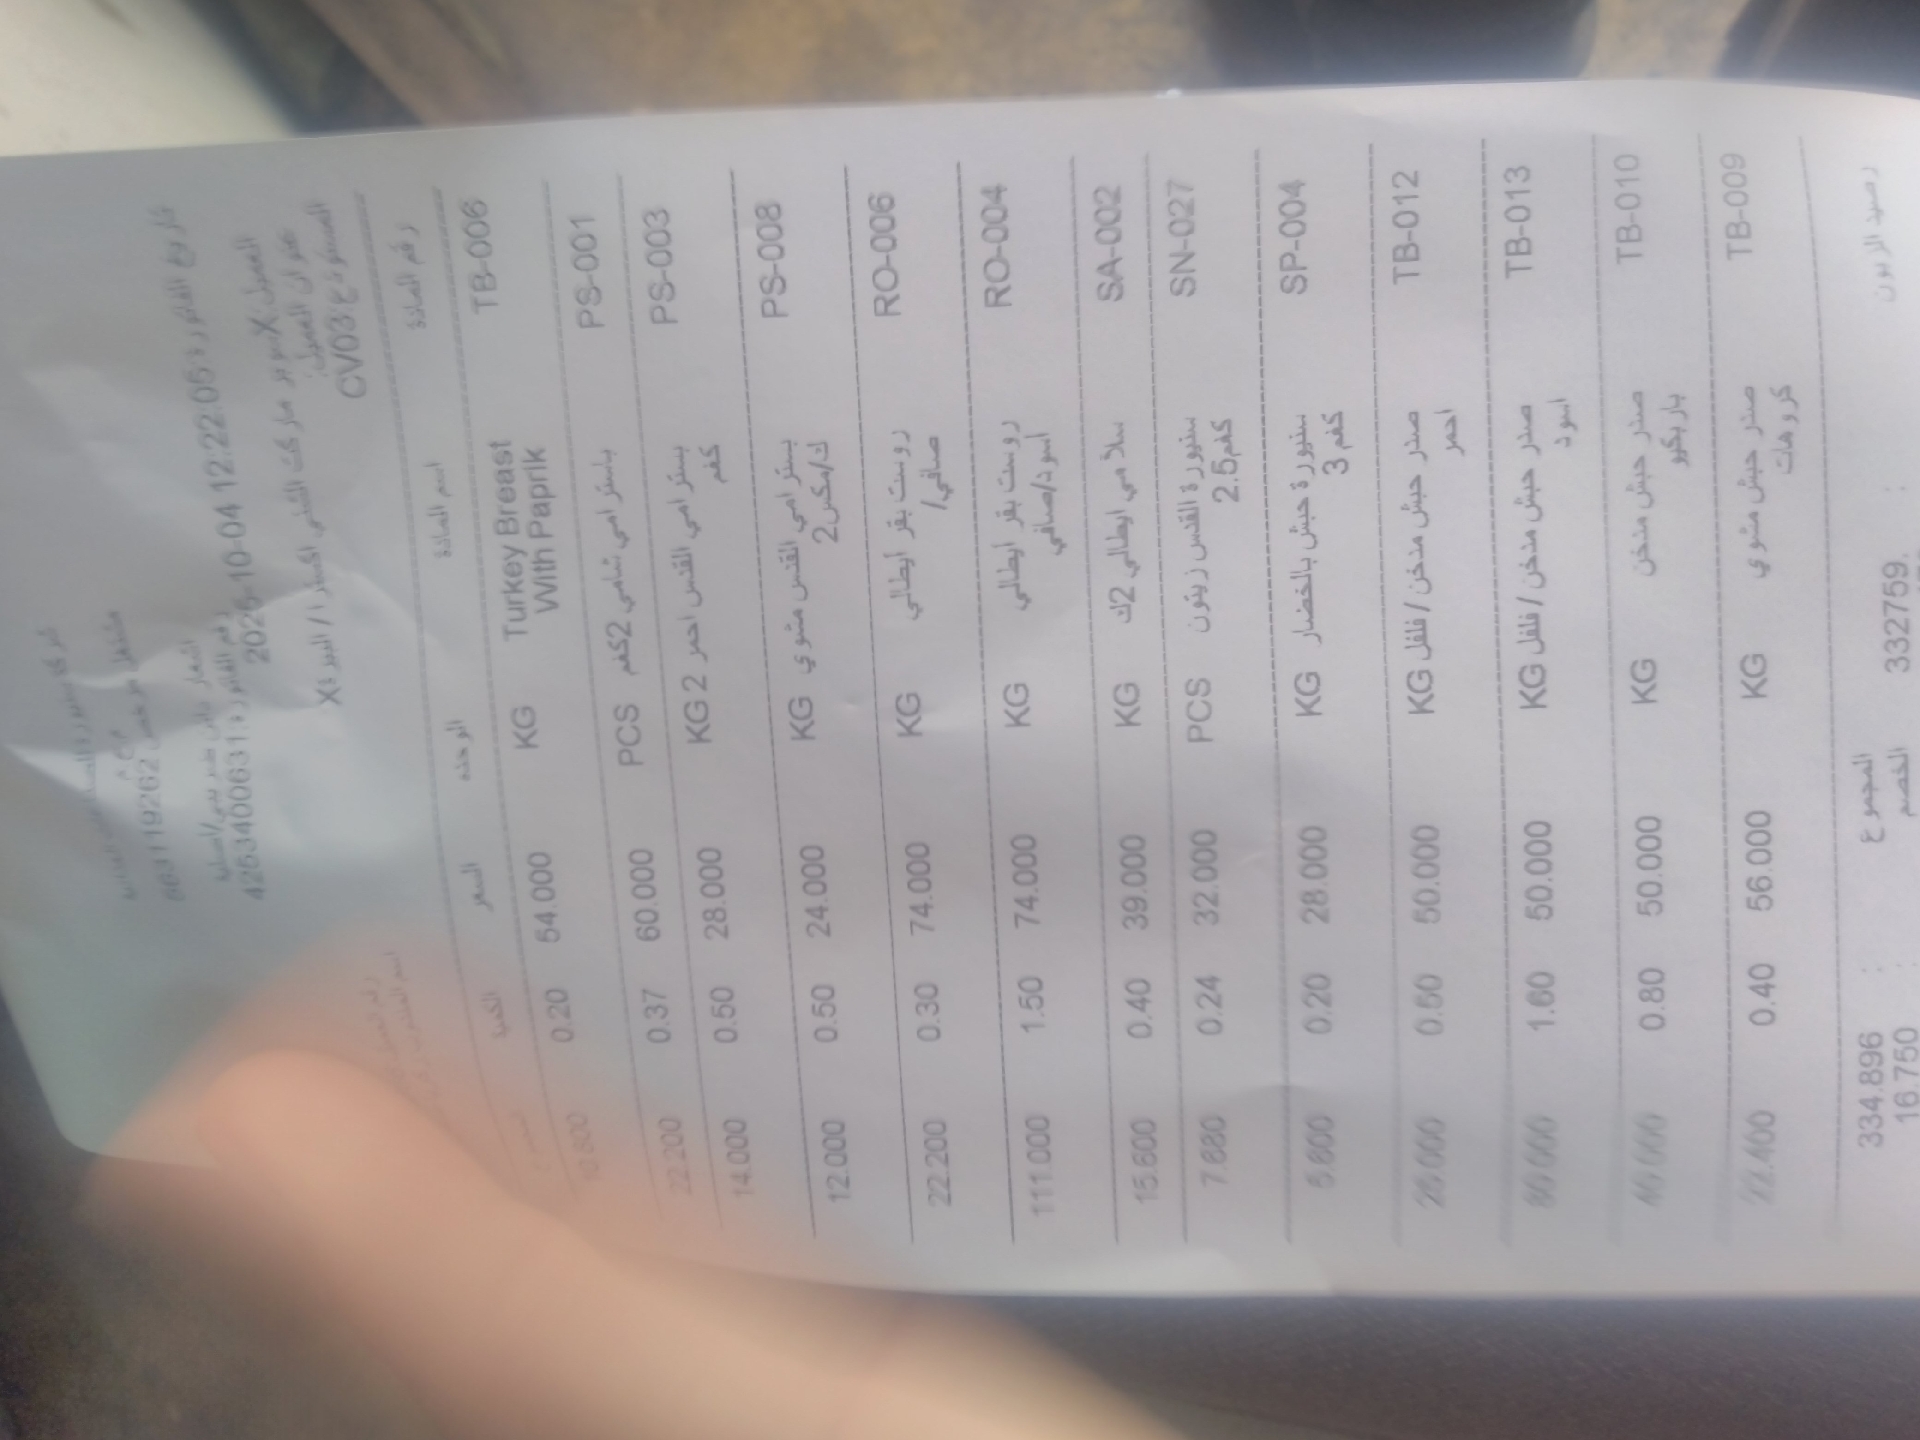 562119262 مشتغل مرخص
تاريخ الفاتورة: 2025-10-04 12:22:05
العميل: X
عنوان العميل:
المستودع: CV03
رقم المادة اسم المادة الوحدة السعر الكمية
TB-006 Turkey Breast KG 54.000 0.20 10.800
With Paprik
PS-001 باسترامي شامي 2كغم PCS 60.000 0.37 22.200
PS-003 بسترامي القدس احمر 2 KG 28.000 0.50 14.000
كغم
PS-008 بسترامي القدس مشوي KG 24.000 0.50 12.000
ك/مكس2
RO-006 روست بقر ايطالي KG 74.000 0.30 22.200
صافي/
RO-004 روست بقر ايطالي KG 74.000 1.50 111.000
اسود/صافي
SA-002 سلامي ايطالي 2ك KG 39.000 0.40 15.600
SN-027 سنيورة القدس زيتون PCS 32.000 0.24 7.680
2.5كغم
SP-004 سنيورة حبش بالخضار KG 28.000 0.20 5.600
3 كغم
TB-012 صدر حبش مدخن / فلفل KG 50.000 0.50 25.000
احمر
TB-013 صدر حبش مدخن / فلفل KG 50.000 1.60 80.000
اسود
TB-010 صدر حبش مدخن KG 50.000 0.80 40.000
باربكيو
TB-009 صدر حبش مشوي KG 56.000 0.40 22.400
كروهات
رصيد الزبون : 332759. المجموع : 334.896
الخصم : 16.750